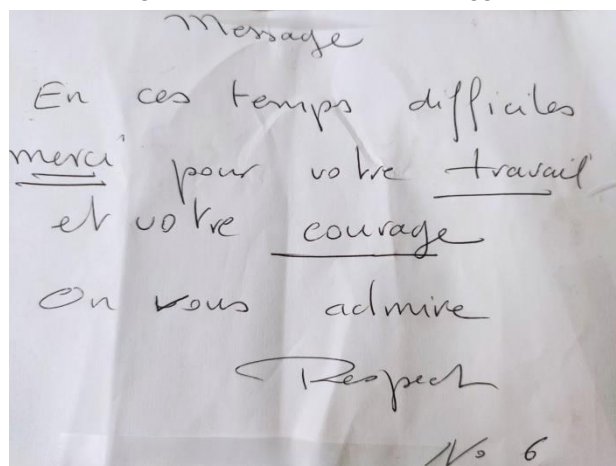 Message
En ces temps difficiles
merci pour votre travail
et votre courage
On vous admire
Respect
No 6